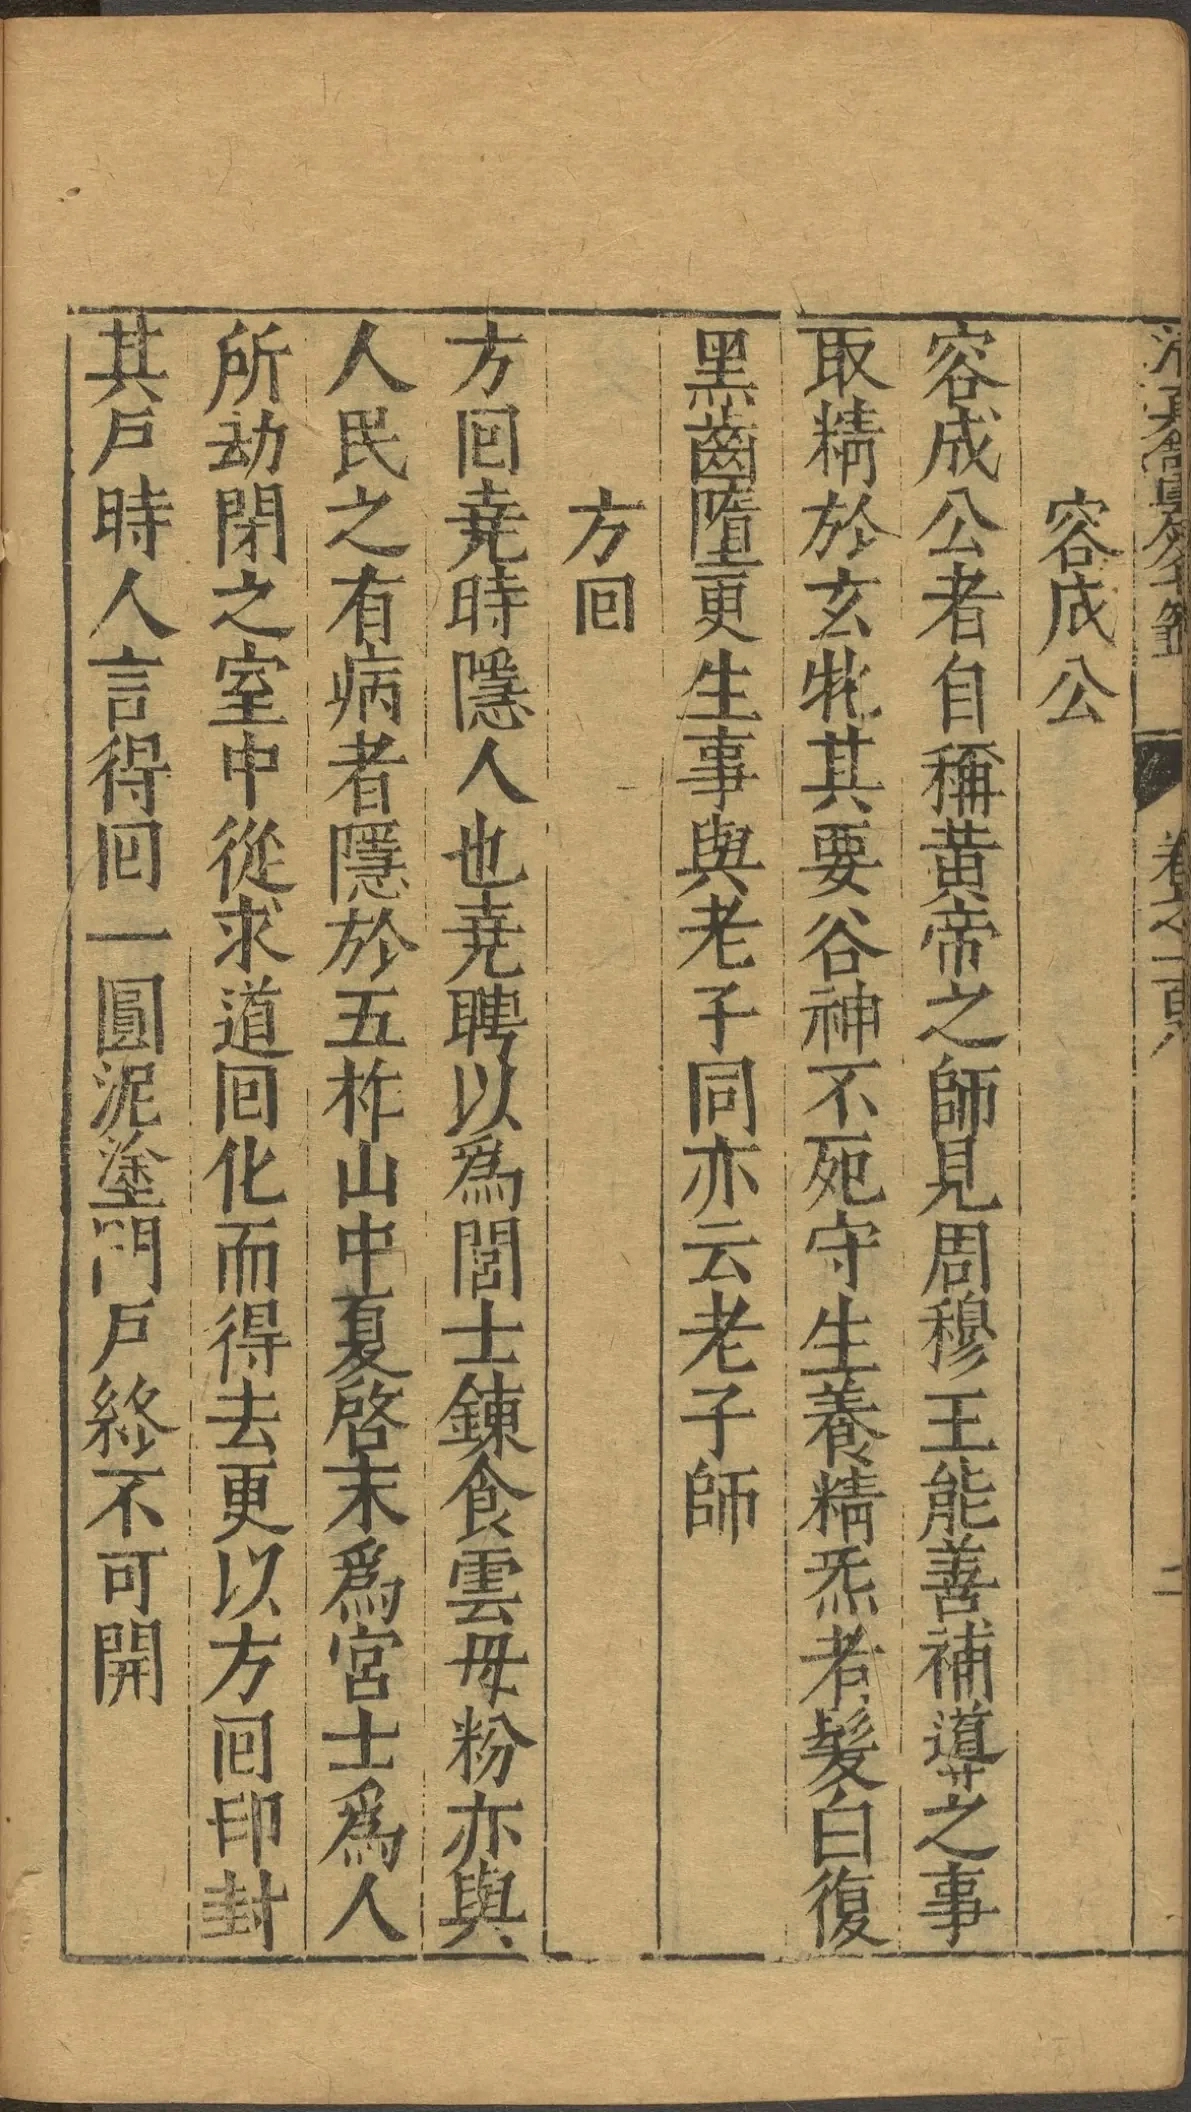 卷之一百八
二
容成公
容成公者自稱黄帝之師見周穆王能善補導之事
取精於玄牝其要谷神不死守生養精炁者髮白復
黑齒墮更生事與老子同亦云老子師
方回
方回堯時隱人也堯聘以爲閭士鍊食雲母粉亦與
人民之有病者隱於五柞山中夏啓末爲宮士爲人
所劫閉之室中從求道回化而得去更以方回印封
其戸時人言得回一圓泥塗門戸終不可開